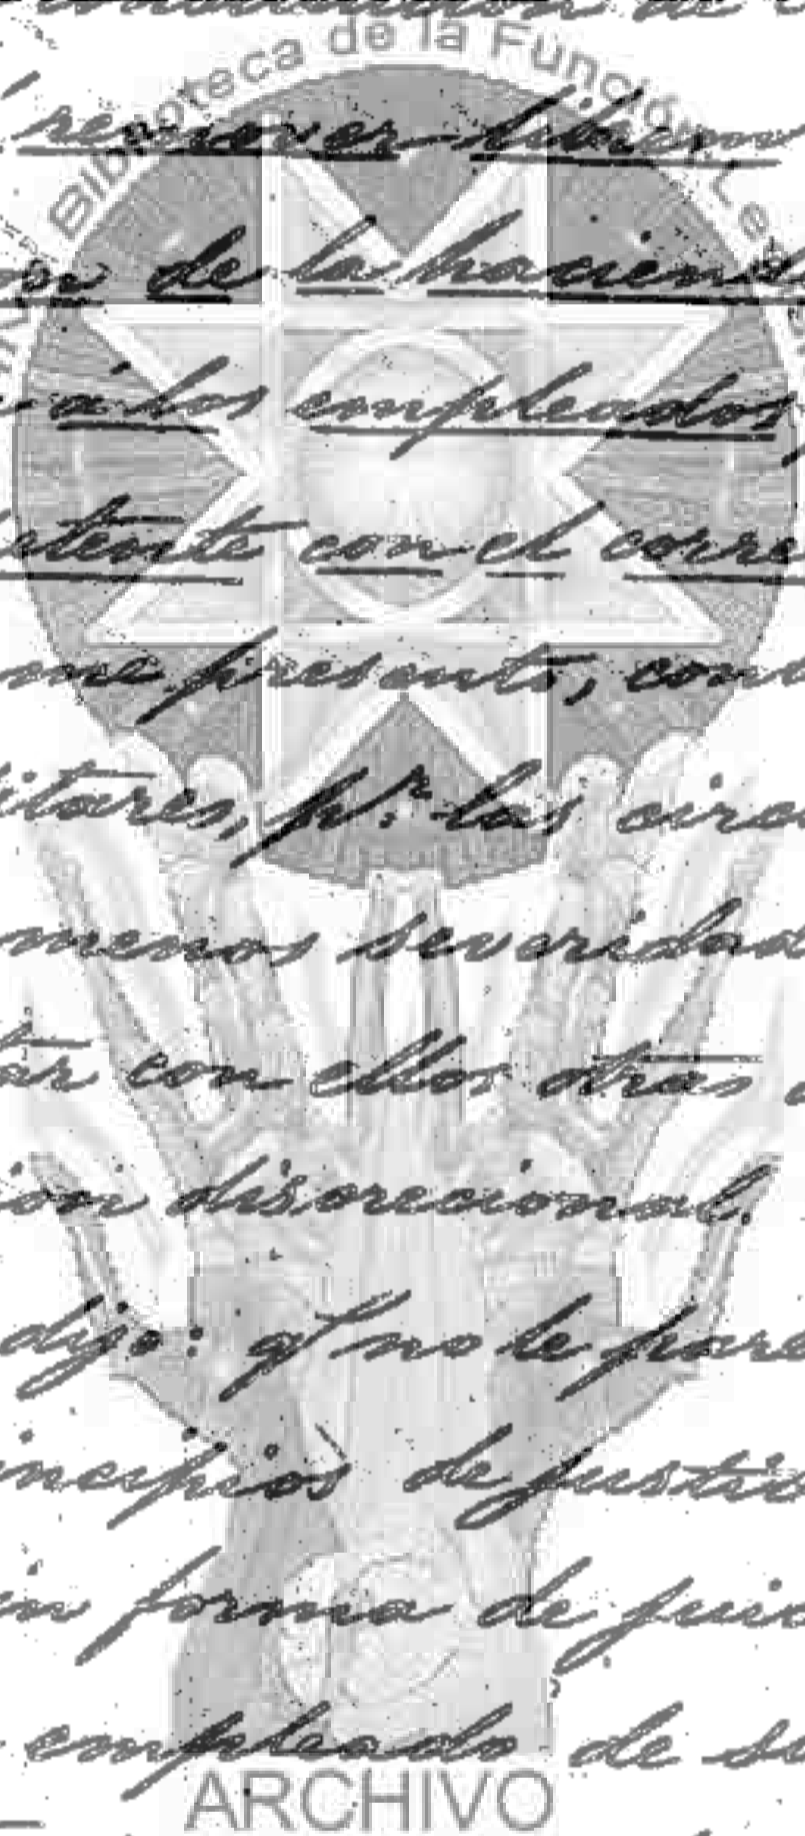 Biblioteca de la Función Le
remover librem
de la haciend
á los empleados,
etente con el corre
me presento, cont
itares, pr. las circ
menos severidad
tar con ellos otras
ion discrecional.
dijo: qe no le pare
incipios de justic
in forma de juic
empleado de su
ARCHIVO